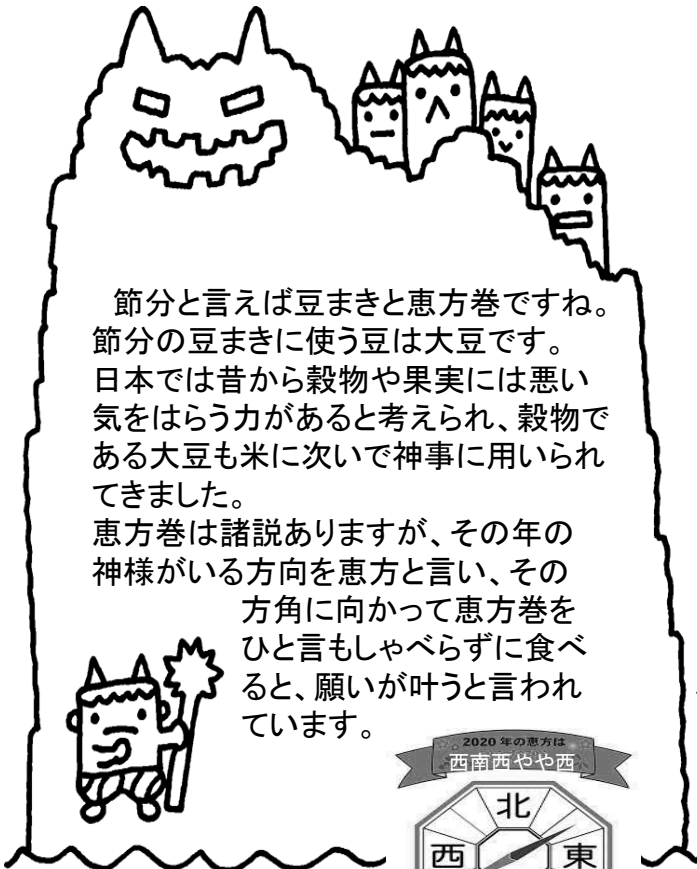 節分と言えば豆まきと恵方巻ですね。
節分の豆まきに使う豆は大豆です。
日本では昔から穀物や果実には悪い
気をはらう力があると考えられ、穀物で
ある大豆も米に次いで神事に用いられ
てきました。
恵方巻は諸説ありますが、その年の
神様がいる方向を恵方と言い、その
方角に向かって恵方巻を
ひと言もしゃべらずに食べ
ると、願いが叶うと言われ
ています。
2020年の恵方は
西南西やや西
北
西 東